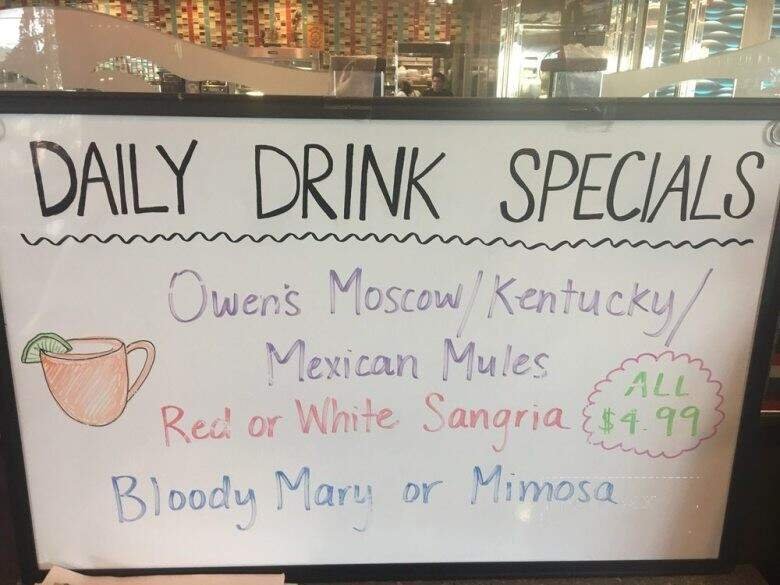 DAILY DRINK SPECIALS
Owen's Moscow/Kentucky/
Mexican Mules
Red or White Sangria
ALL
$4.99
Bloody Mary or Mimosa